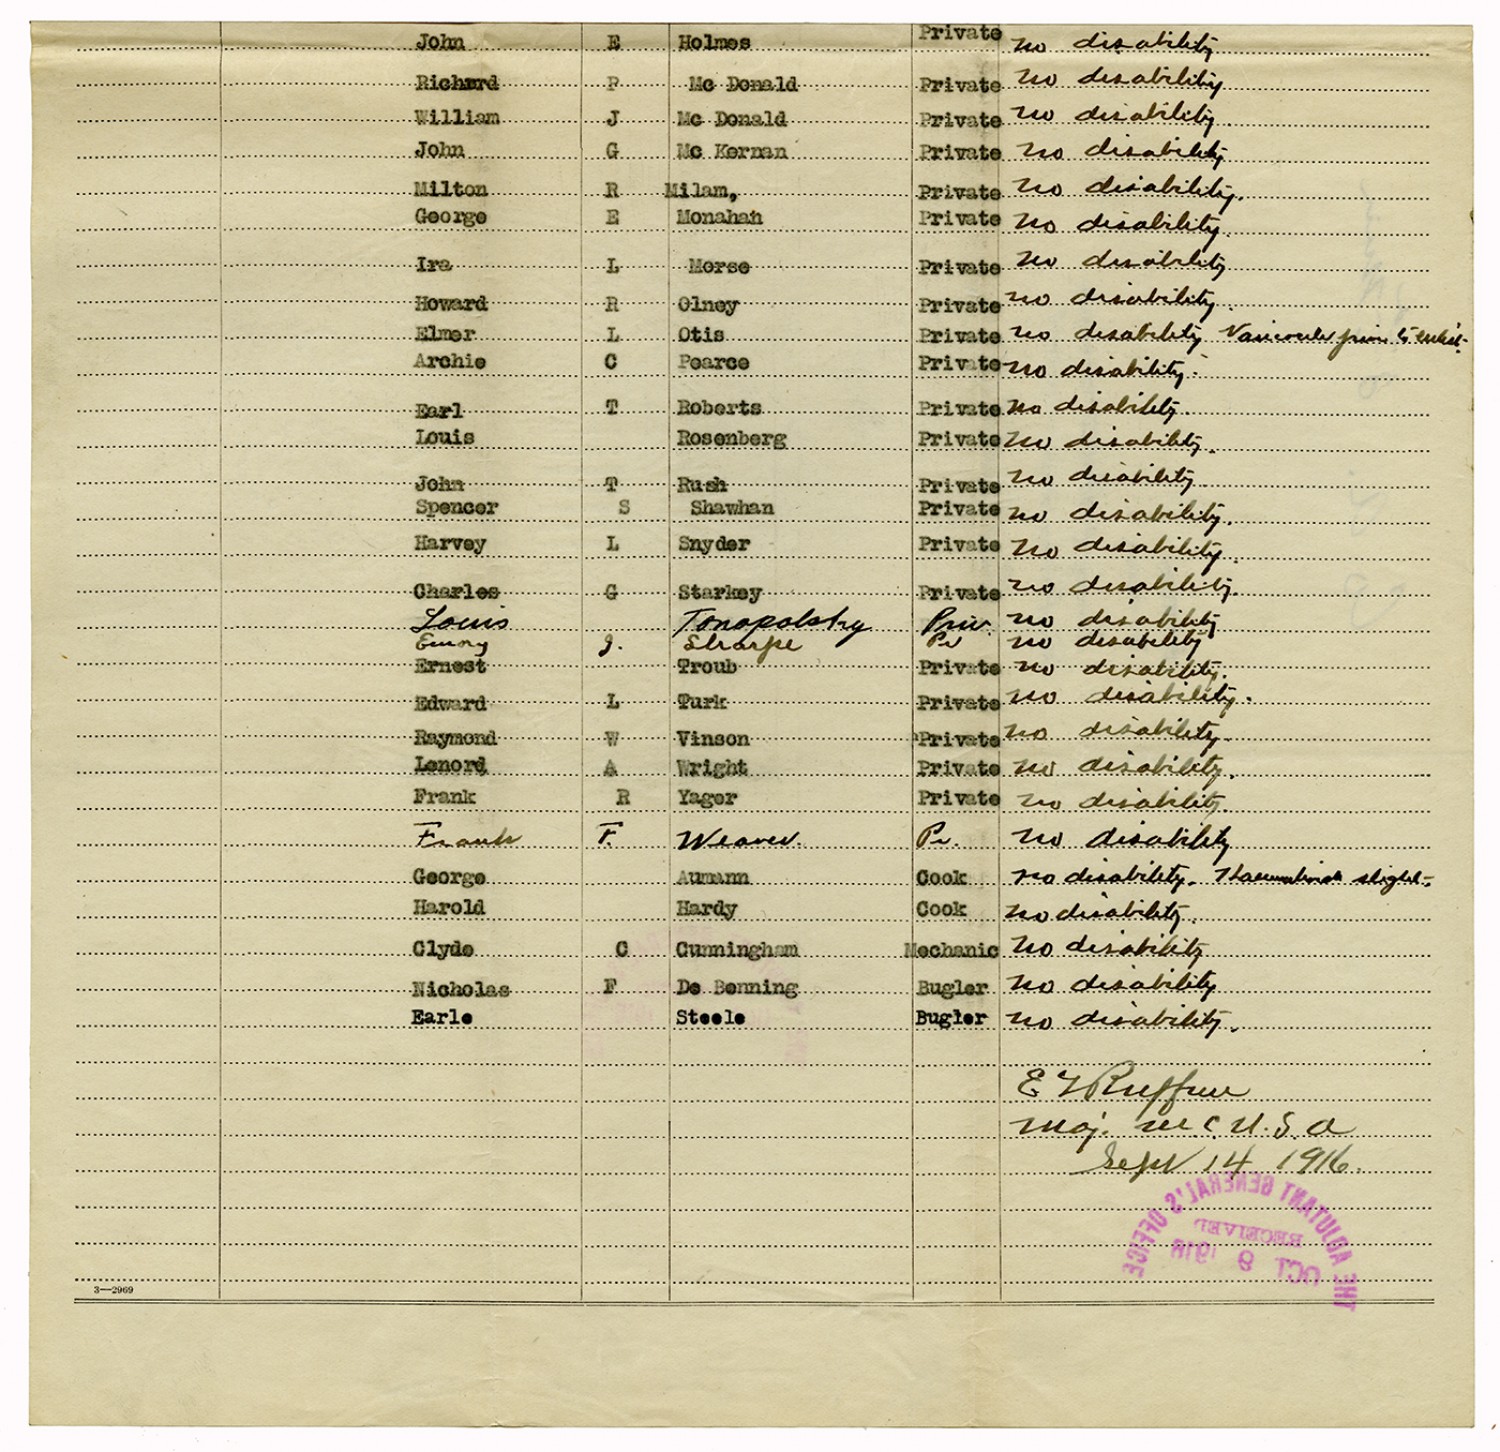 John E Holmes Private no disability
Richard P Mc Donald Private no disability
William J Mc Donald Private no disability
John G Mc Kernan Private no disability
Milton R Milam, Private no disability.
George E Monahan Private no disability.
Ira L Morse Private no disability
Howard R Olney Private no disability.
Elmer L Otis Private no disability prior to enlist.
Archie C Pearce Private no disability.
Earl T Roberts Private no disability.
Louis Rosenberg Private no disability.
John T Rush Private no disability.
Spencer S Shawhan Private no disability.
Harvey L Snyder Private no disability.
Charles G Starkey Private no disability.
Louis Tonopolsky Priv. no disability
Emory J. Sharpe Pv no disability
Ernest Troub Private no disability.
Edward L Turk Private no disability.
Raymond W Vinson Private no disability.
Lenord A Wright Private no disability.
Frank R Yager Private no disability.
Frank F. Weaver. Pv. no disability
George Aumann Cook no disability. slight.
Harold Hardy Cook no disability.
Clyde C Cunningham Mechanic no disability
Nicholas F De Benning Bugler no disability
Earle Steele Bugler no disability.
E F Ruffner
Maj. M.C. U.S.A
Sept 14 1916.
THE ADJUTANT GENERAL'S OFFICE
RECEIVED
OCT 9 1916
3—2969